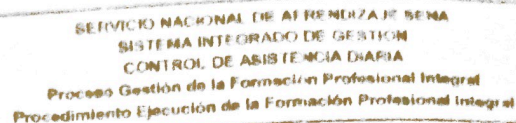 SERVICIO NACIONAL DE APRENDIZAJE SENA
SISTEMA INTEGRADO DE GESTION
CONTROL DE ASISTENCIA DIARIA
Proceso Gestión de la Formación Profesional Integral
Procedimiento Ejecución de la Formación Profesional Integral